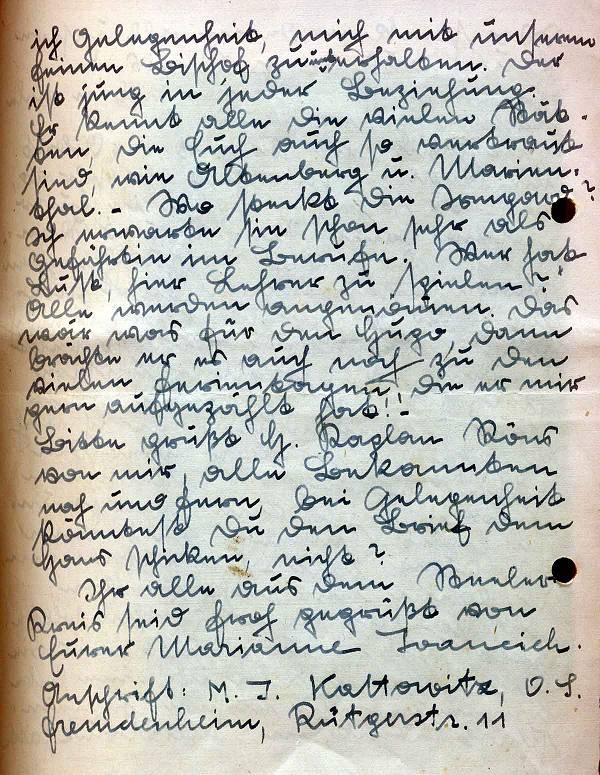 ich Gelegenheit, mich mit unserem
feinen Bischof zu unterhalten. Der
ist jung in jeder Beziehung.
Er kennt alle die vielen Stät-
ten, die Euch auch so vertraut
sind, wie Altenberg u. Marien-
thal. - Wo steckt die Irmgard?
Ich erwarte sie schon sehr als
Gefährtin im Berufe. Wer hat
Lust, hier Lehrer zu spielen?
Alle werden angenommen. Das
wär was für den Hugo, dann
brächte er es auch noch zu den
vielen Ferientagen, die er mir
gern aufgezählt hat!! -
Bitte grüßt H. Kaplan Köns
von mir, alle Bekannten
nah und fern, bei Gelegenheit
könntest Du den Brief dem
Hans schicken, nicht?
Ihr alle aus dem
Kreis seid froh gegrüßt von
Eurer Marianne Ivancich.
Anschrift: M. I. Kattowitz, O. S.
Fremdenheim, Rütgerstr. 11